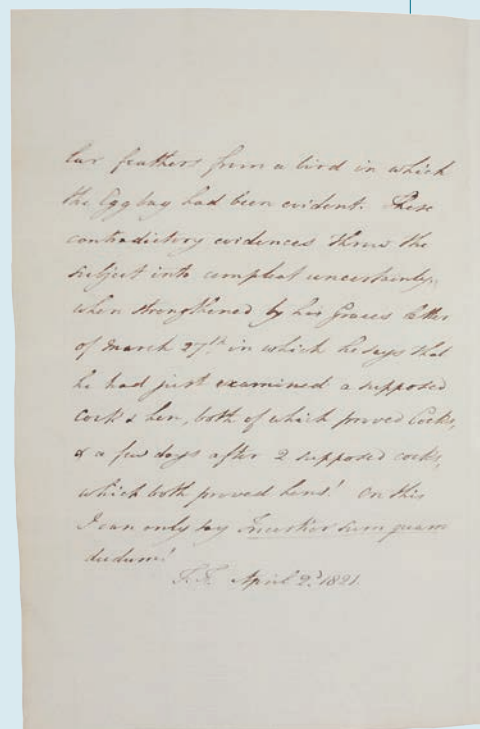 lar feathers from a bird in which
the Egg bag had been evident. These
contradictory evidences threw the
subject into compleat uncertainty,
when strengthened by his Graces letter
of March 27th in which he says that
he had just examined a supposed
Cock & hen, both of which proved Cocks,
& a few days after 2 supposed cocks,
which both proved hens! On this
I can only say Incertior sum quam
dudum!
April 2d 1821.